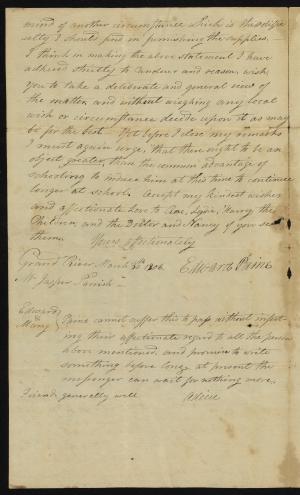 mind of another circumstance which is the diffi
culty I should find in furnishing the supplies.
I think in making the above statement I have
adhered strictly to candour and reason, wish
you to take a deliberate and general view of
the matter and without weighing any local
wish or circumstance decide upon it as may
be for the best. Yet before I close my remarks
I must again urge, that there ought to be an
object greater, than the common advantage of
schooling to induce him at this time to continue
longer at school. Accept my kindest wishes
and affectionate love to Lydia, Harry the
Children, and the Doctor and Nancy if you see
them.
Yours affectionately
Edward Paine
Grand River March 1806
Mr Jasper Parrish
Edward
& Mary Paine cannot suffer this to pass without insert
ing their affectionate regard to all the persons
above mentioned, and promise to write
something before long at present the
messenger can wait for nothing more.
Friends generally well